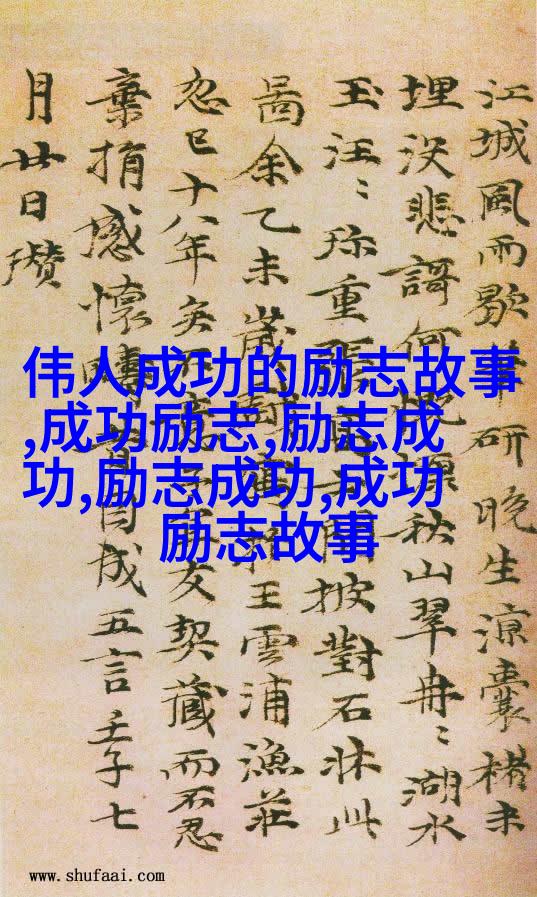 伟人成功的励志故事
,成功励志,励志成
功,励志成功,成功
励志故事
江城風雨歇研晚生凉囊楮未
埋沒悲謌何秋山翠冉〻湖水
玉汪〻珍重披對石牀此
啚余乙未歲王雲浦漁莊
忽已十八年矣友契藏而不忍
棄捐感懷因成五言壬子七
月廿日瓚
www.shufaai.com